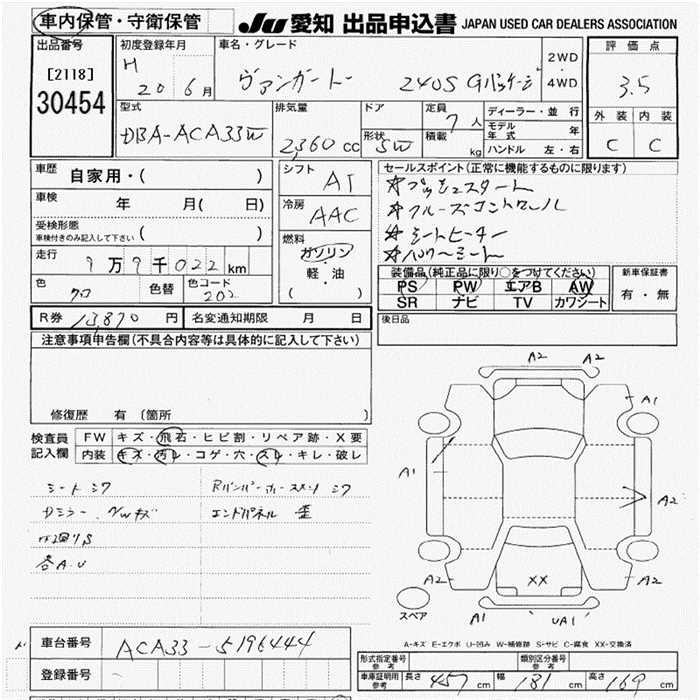 車内保管・守衛保管
JU 愛知 出品申込書 JAPAN USED CAR DEALERS ASSOCIATION
出品番号
[2118]
30454
初度登録年月
H
20 6月
車名・グレード
ヴァンガード 240S Gパッケージ
2WD
4WD
評価点
3.5
外装 内装
C C
型式
DBA-ACA33W
排気量
2,360 cc
ドア
形状
5W
定員
7人
積載
kg
ディーラー・並行
モデル年式 年
ハンドル 左・右
車歴 自家用・( )
車検 年 月( 日)
受検形態
車検付きのみ記入して下さい ( )
走行
9万9千022 km
色
クロ
色替
色コード
202
シフト
AT
冷房
AAC
燃料
ガソリン
軽・油
( )
セールスポイント(正常に機能するものに限ります)
☆プッシュスタート
☆クルーズコントロール
☆シートヒーター
☆パワーシート
装備品(純正品に限り○をつけてください)
PS PW エアB AW
SR ナビ TV カワシート
新車保証書
有・無
R券 13,870 円 名変通知期限 月 日
後日品
注意事項申告欄(不具合内容等は具体的に記入して下さい)
修復歴 有 〔箇所 〕
検査員記入欄
FW キズ・飛石・ヒビ割・リペア跡・X要
内装 キズ・汚レ・コゲ・穴・スレ・キレ・破レ
シートシワ
Dミラー、
各A.U
エンドパネル 歪
A2 A2
A1
A1
A2
A2
A2
XX
A1
UA1
スペア
A-キズ E-エクボ U-凹み W-補修跡 S-サビ C-腐食 XX-交換済
車台番号 ACA33-5196444
登録番号
形式指定番号参考
類別区分番号参考
車庫証明用参考
長さ 457 cm 巾 181 cm 高さ 169 cm